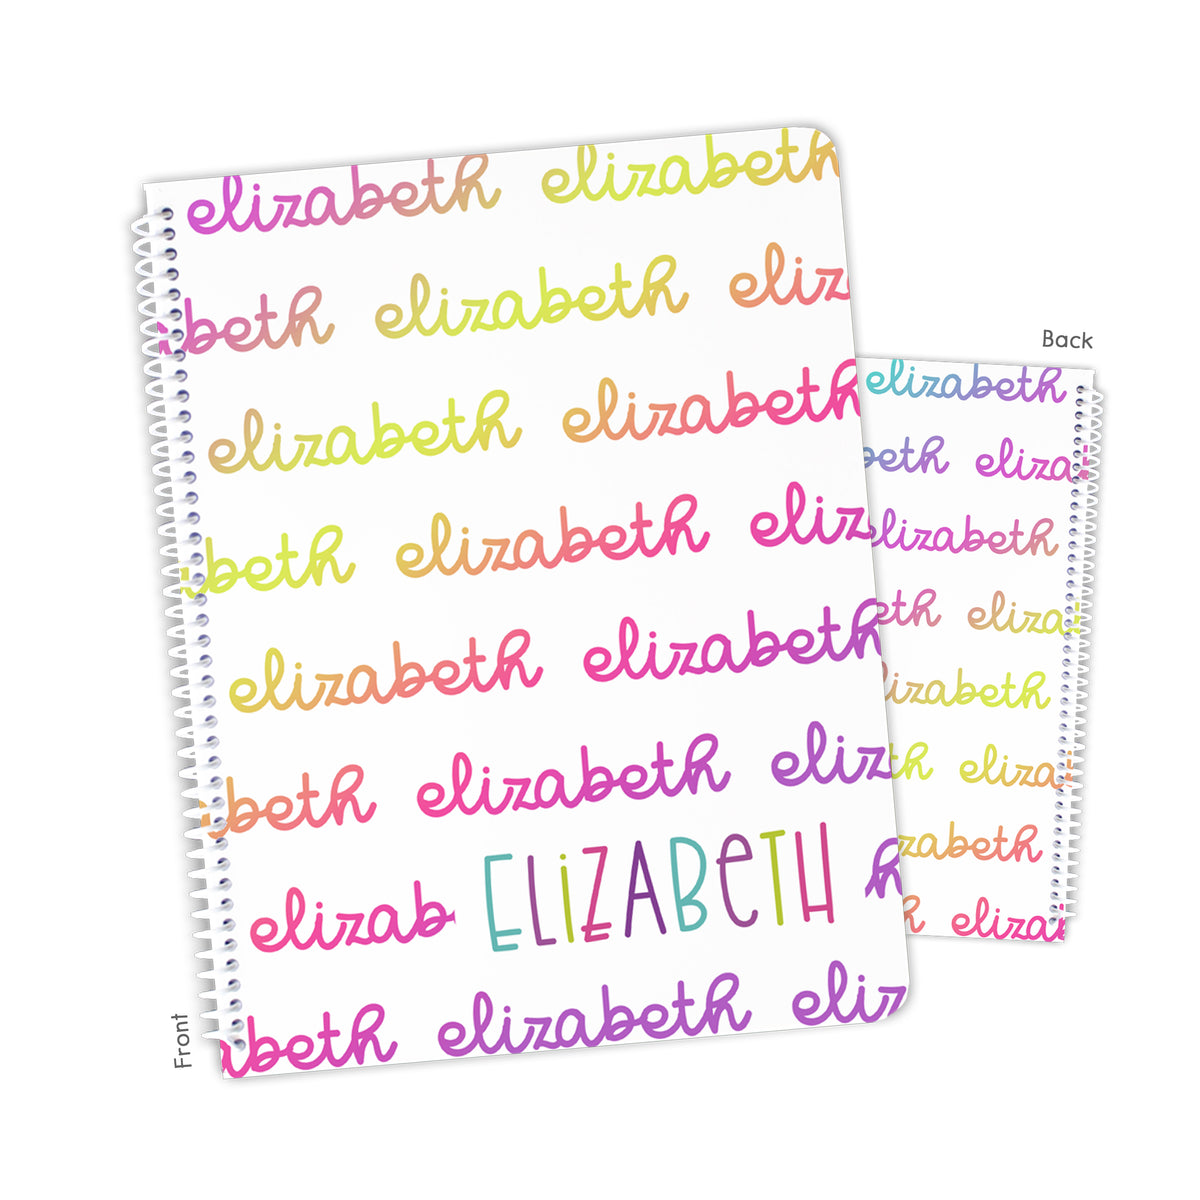 elizabeth elizabeth
abeth elizabeth eliz
elizabeth elizabeth
abeth elizabeth eliz
elizabeth elizabeth
abeth elizabeth eliz
elizab ELIZABETH h
abeth elizabeth eliz
Front
Back
elizabeth
beth eliza
elizabeth
eth eliza
lizabeth
th elizal
zabeth
h elizal